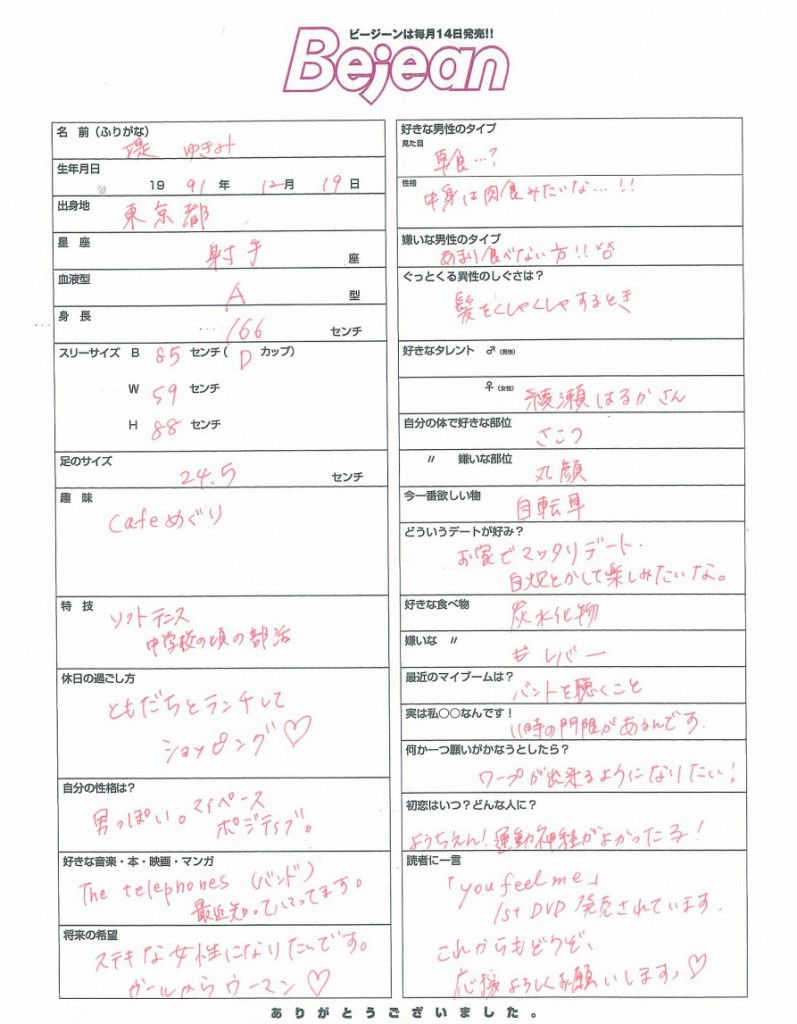 ビージーンは毎月14日発売!!
Bejean
名 前(ふりがな)
堤 ゆきみ
生年月日
19 91 年 12 月 19 日
出身地
東京都
星 座
射手 座
血液型
A 型
身 長
166 センチ
スリーサイズ B 85 センチ( D カップ)
W 59 センチ
H 88 センチ
足のサイズ
24.5 センチ
趣 味
Cafeめぐり
特 技
ソフトテニス
中学校の頃の部活
休日の過ごし方
ともだちとランチして
ショッピング♡
自分の性格は?
男っぽい。マイペース
ポジティブ。
好きな音楽・本・映画・マンガ
The telephones (バンド)
最近知ってハマってます。
将来の希望
ステキな女性になりたいです。
ガールからウーマン♡
好きな男性のタイプ
見た目
草食…?
性格
中身は肉食みたいな…!!
嫌いな男性のタイプ
あまり食べない方!!
ぐっとくる異性のしぐさは?
髪をくしゃくしゃするとき
好きなタレント ♂(男性)
♀(女性)
綾瀬はるかさん
自分の体で好きな部位
さこつ
〃 嫌いな部位
丸顔
今一番欲しい物
自転車
どういうデートが好み?
お家でマッタリデート.
自炊とかして楽しみたいな。
好きな食べ物
炭水化物
嫌いな 〃
レバー
最近のマイブームは?
バンドを聴くこと
実は私〇〇なんです!
11時の門限があるんです.
何か一つ願いがかなうとしたら?
ワープが出来るようになりたい!
初恋はいつ?どんな人に?
ようちえん!運動神経がよかった子!
読者に一言
「you feel me」
1st DVD 発売されています.
これからもどうぞ、
応援よろしくお願いします♡
ありがとうございました。